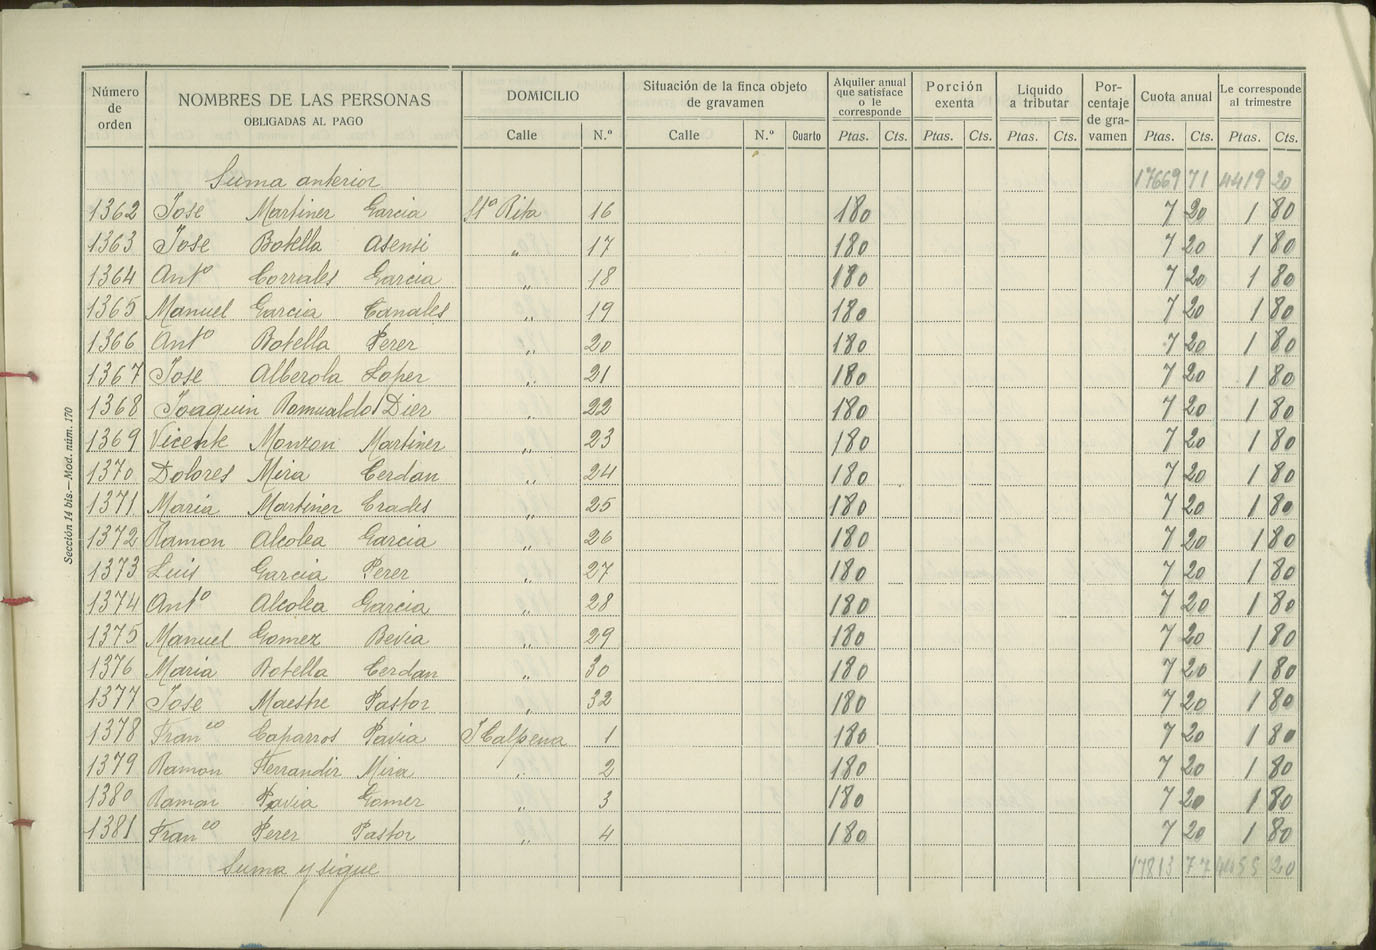 Número de orden NOMBRES DE LAS PERSONAS OBLIGADAS AL PAGO DOMICILIO Situación de la finca objeto de gravamen Alquiler anual que satisface o le corresponde Porción exenta Liquido a tributar Porcentaje de gravamen Cuota anual Le corresponde al trimestre
Calle N.º Calle N.º Cuarto Ptas. Cts. Ptas. Cts. Ptas. Cts. Ptas. Cts. Ptas. Cts.
Suma anterior 17669 71 4419 20
1362 Jose Martinez Garcia Stª Rita 16 180 7 20 1 80
1363 Jose Botella Asensi " 17 180 7 20 1 80
1364 Antº Corrales Garcia " 18 180 7 20 1 80
1365 Manuel Garcia Canales " 19 180 7 20 1 80
1366 Antº Botella Perez " 20 180 7 20 1 80
1367 Jose Alberola Lopez " 21 180 7 20 1 80
1368 Joaquin Romualdo Diez " 22 180 7 20 1 80
1369 Vicente Monzon Martinez " 23 180 7 20 1 80
1370 Dolores Mira Cerdan " 24 180 7 20 1 80
1371 Maria Martinez Crades " 25 180 7 20 1 80
1372 Ramon Alcolea Garcia " 26 180 7 20 1 80
1373 Luis Garcia Perez " 27 180 7 20 1 80
1374 Antº Alcolea Garcia " 28 180 7 20 1 80
1375 Manuel Gomez Bevia " 29 180 7 20 1 80
1376 Maria Botella Cerdan " 30 180 7 20 1 80
1377 Jose Maestre Pastor " 32 180 7 20 1 80
1378 Franco Caparros Pavia J Calpena 1 180 7 20 1 80
1379 Ramon Ferrandiz Mira " 2 180 7 20 1 80
1380 Ramon Pavia Gomez " 3 180 7 20 1 80
1381 Franco Perez Pastor " 4 180 7 20 1 80
Suma y sigue 17813 77 4455 20
Sección 14 bis.—Mod. núm. 170